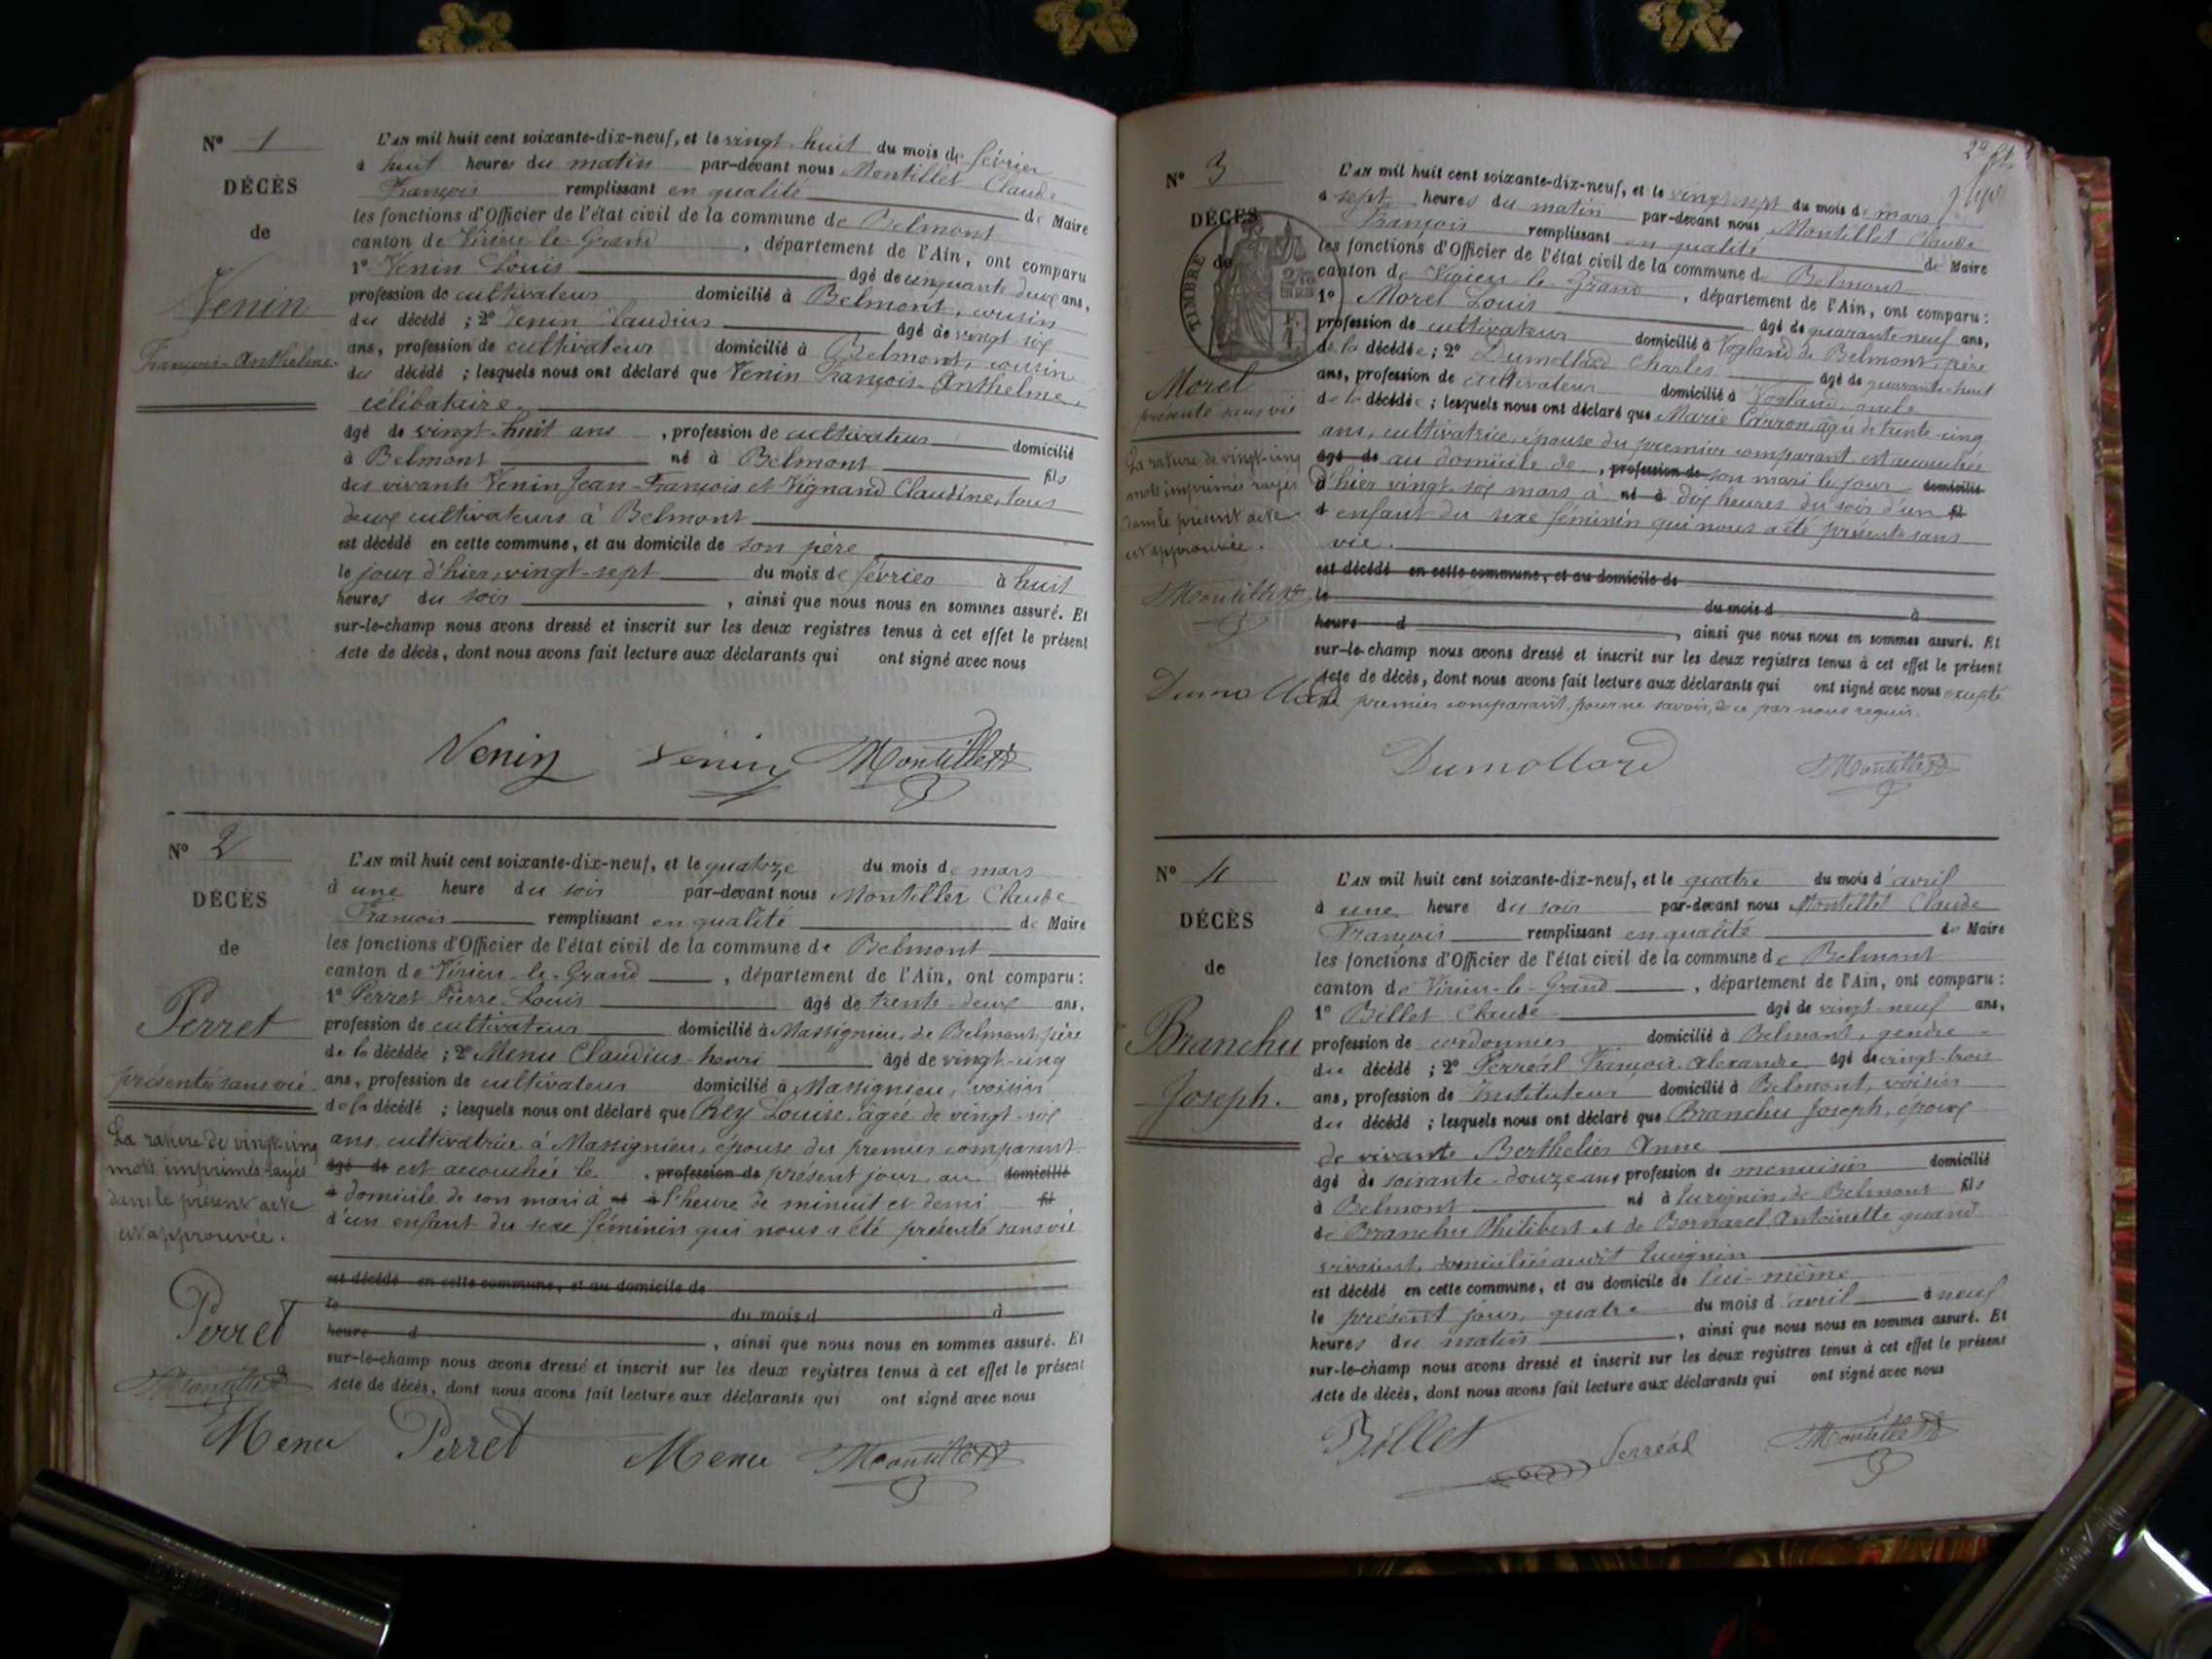 N° 1
DÉCÈS
de
Venin
François-Anthelme.
L'AN mil huit cent soixante-dix-neuf, et le vingt-huit du mois de février
à huit heures du matin par-devant nous Montillet Claude
François remplissant en qualité de Maire
les fonctions d'Officier de l'état civil de la commune de Belmont
canton de Virieu-le-Grand, département de l'Ain, ont comparu
1° Venin Louis âgé de cinquante-deux ans,
profession de cultivateur domicilié à Belmont, cousin
du décédé ; 2° Venin Claudius âgé de vingt-six
ans, profession de cultivateur domicilié à Belmont, cousin
du décédé ; lesquels nous ont déclaré que Venin François-Anthelme,
célibataire,
âgé de vingt-huit ans, profession de cultivateur domicilié
à Belmont né à Belmont fils
des vivants Venin Jean-François et Vignand Claudine, tous
deux cultivateurs à Belmont
est décédé en cette commune, et au domicile de son père
le jour d'hier, vingt-sept du mois de février à huit
heures du soir, ainsi que nous nous en sommes assuré. Et
sur-le-champ nous avons dressé et inscrit sur les deux registres tenus à cet effet le présent
Acte de décès, dont nous avons fait lecture aux déclarants qui ont signé avec nous
Venin Venin Montillet
N° 2
DÉCÈS
de
Perret
présenté sans vie
La rature de vingt-cinq
mots imprimés rayés
dans le présent acte
est approuvée.
Perret
Montillet
Menu
L'AN mil huit cent soixante-dix-neuf, et le quatorze du mois de mars
à une heure du soir par-devant nous Montillet Claude
François remplissant en qualité de Maire
les fonctions d'Officier de l'état civil de la commune de Belmont
canton de Virieu-le-Grand, département de l'Ain, ont comparu :
1° Perret Pierre-Louis âgé de trente-deux ans,
profession de cultivateur domicilié à Massignieu, de Belmont, père
de la décédée ; 2° Menu Claudius-henri âgé de vingt-cinq
ans, profession de cultivateur domicilié à Massignieu, voisin
de la décédé ; lesquels nous ont déclaré que Rey Louise, âgée de vingt-six
ans, cultivatrice à Massignieu, épouse du premier comparant
âgé de est accouchée le, profession de présent jour, au domicilié
à domicile de son mari à né à l'heure de minuit et demi fil
d'un enfant du sexe féminin qui nous a été présenté sans vie
est décédé en cette commune, et au domicile de
le du mois d à
heure d, ainsi que nous nous en sommes assuré. Et
sur-le-champ nous avons dressé et inscrit sur les deux registres tenus à cet effet le présent
Acte de décès, dont nous avons fait lecture aux déclarants qui ont signé avec nous
Perret Menu Montillet
N° 3
DÉCÈS
de
TIMBRE
Morel
présenté sans vie
La rature de vingt-cinq
mots imprimés rayés
dans le présent acte
est approuvée.
Montillet
Dumollard
L'AN mil huit cent soixante-dix-neuf, et le vingt-sept du mois de mars
à sept heures du matin par-devant nous Montillet Claude
François remplissant en qualité de Maire
les fonctions d'Officier de l'état civil de la commune de Belmont
canton de Virieu-le-Grand, département de l'Ain, ont comparu :
1° Morel Louis âgé de quarante-neuf ans,
profession de cultivateur domicilié à Vogland de Belmont, père
de la décédée ; 2° Dumollard Charles âgé de quarante-huit
ans, profession de cultivateur domicilié à Vogland, oncle
de la décédée ; lesquels nous ont déclaré que Marie Carron, âgée de trente-cinq
ans, cultivatrice, épouse du premier comparant est accouchée
âgé de au domicile de, profession de son mari le jour domicilié
d'hier vingt-six mars à né à dix heures du soir d'un fil
d enfant du sexe féminin qui nous a été présenté sans
vie.
est décédé en cette commune, et au domicile de
le du mois d à
heure d, ainsi que nous nous en sommes assuré. Et
sur-le-champ nous avons dressé et inscrit sur les deux registres tenus à cet effet le présent
Acte de décès, dont nous avons fait lecture aux déclarants qui ont signé avec nous excepté
le premier comparant, pour ne savoir, de ce par nous requis.
Dumollard Montillet
N° 4
DÉCÈS
de
Branchu
Joseph.
L'AN mil huit cent soixante-dix-neuf, et le quatre du mois d'avril
à une heure du soir par-devant nous Montillet Claude
François remplissant en qualité de Maire
les fonctions d'Officier de l'état civil de la commune de Belmont
canton de Virieu-le-Grand, département de l'Ain, ont comparu :
1° Billet Claude âgé de vingt-neuf ans,
profession de cordonnier domicilié à Belmont, gendre
du décédé ; 2° Perréal François Alexandre âgé de vingt-trois
ans, profession de Instituteur domicilié à Belmont, voisin
du décédé ; lesquels nous ont déclaré que Branchu Joseph, époux
de vivante Berthelier Anne
âgé de soixante-douze ans profession de menuisier domicilié
à Belmont né à de Belmont fils
de Branchu Philibert et de Bornarel Antoinette quand
vivaient, domiciliés audit
est décédé en cette commune, et au domicile de lui-même
le présent jour, quatre du mois d'avril à neuf
heures du matin, ainsi que nous nous en sommes assuré. Et
sur-le-champ nous avons dressé et inscrit sur les deux registres tenus à cet effet le présent
Acte de décès, dont nous avons fait lecture aux déclarants qui ont signé avec nous
Billet Perréal Montillet